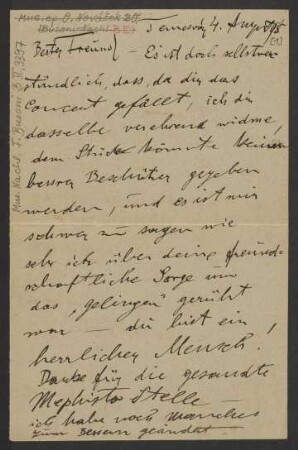 Mus.ep. O. Novaček 2
(Busoni-Nachl. B II)
Mus. Nachl. F. Busoni B II, 3397
Temesvár 4. Aug
Bester Freund! — Es ist doch selbstver-
ständlich, dass, da dir das
Concert gefällt, ich dir
dasselbe verehrend widme,
dem Stücke könnte keinen
bessren Beschützer gegeben
werden, und es ist mir
schwer zu sagen wie
sehr ich über deine freund-
schaftliche Sorge um
das „gelingen" gerührt
war — du bist ein
herrlicher Mensch!
Danke für die gesandte
Mephisto Stelle —
ich habe noch manches
zum bessern geändert —